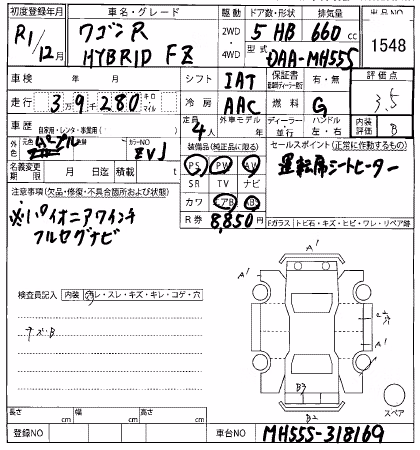 初度登録年月 車名・グレード 駆動 ドア数・形状 排気量 出品NO
R1/12月 ワゴンR HYBRID FZ 2WD・4WD 5 HB 660cc 1548
型式 DAA-MH55S
車検 年 月 シフト IAT 保証書 有・無 評価点
走行 3万9千280 キロ マイル 冷房 AAC 燃料 G 3.5
車歴 自家用・レンタ・事業用( ) 定員 4人 外車モデル 年 ディーラー・並行 ハンドル 左・右 内装評価 B
外色 元色 パープル カラーNO ZVJ 装備品(純正品に限る) セールスポイント(正常に作動するもの)
名義変更期限 月 日 積載 t PS PW AW 運転席シートヒーター
注意事項(欠品・修復・不具合箇所および状態) SR TV ナビ
※パイオニア7インチ カワ エアB ABS
フルセグナビ R券 8,850円
Fガラス トビ石・キズ・ヒビ・ワレ・リペア跡
A1
検査員記入 内装 ヨゴレ・スレ・キズ・キレ・コゲ・穴
キズB
A1
B3
B2
スペア
長さ cm 幅 cm 高さ cm
登録NO 車台NO MH55S-318169